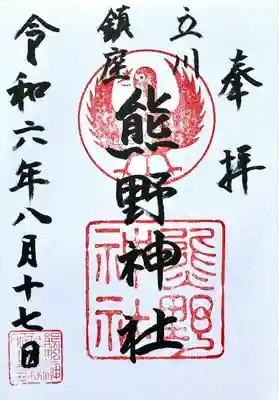 奉拝
立川
鎮座
熊野神社
令和六年八月十七日
熊野
神社